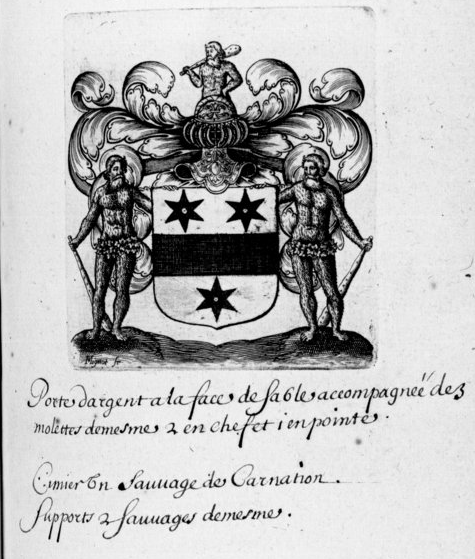 Porte dargent a la face de sable accompagneé de 3
molettes demesme 2 en chef et i en pointe.
Cimier Un Sauvage de Carnation.
Supports 2 Sauvages demesme.